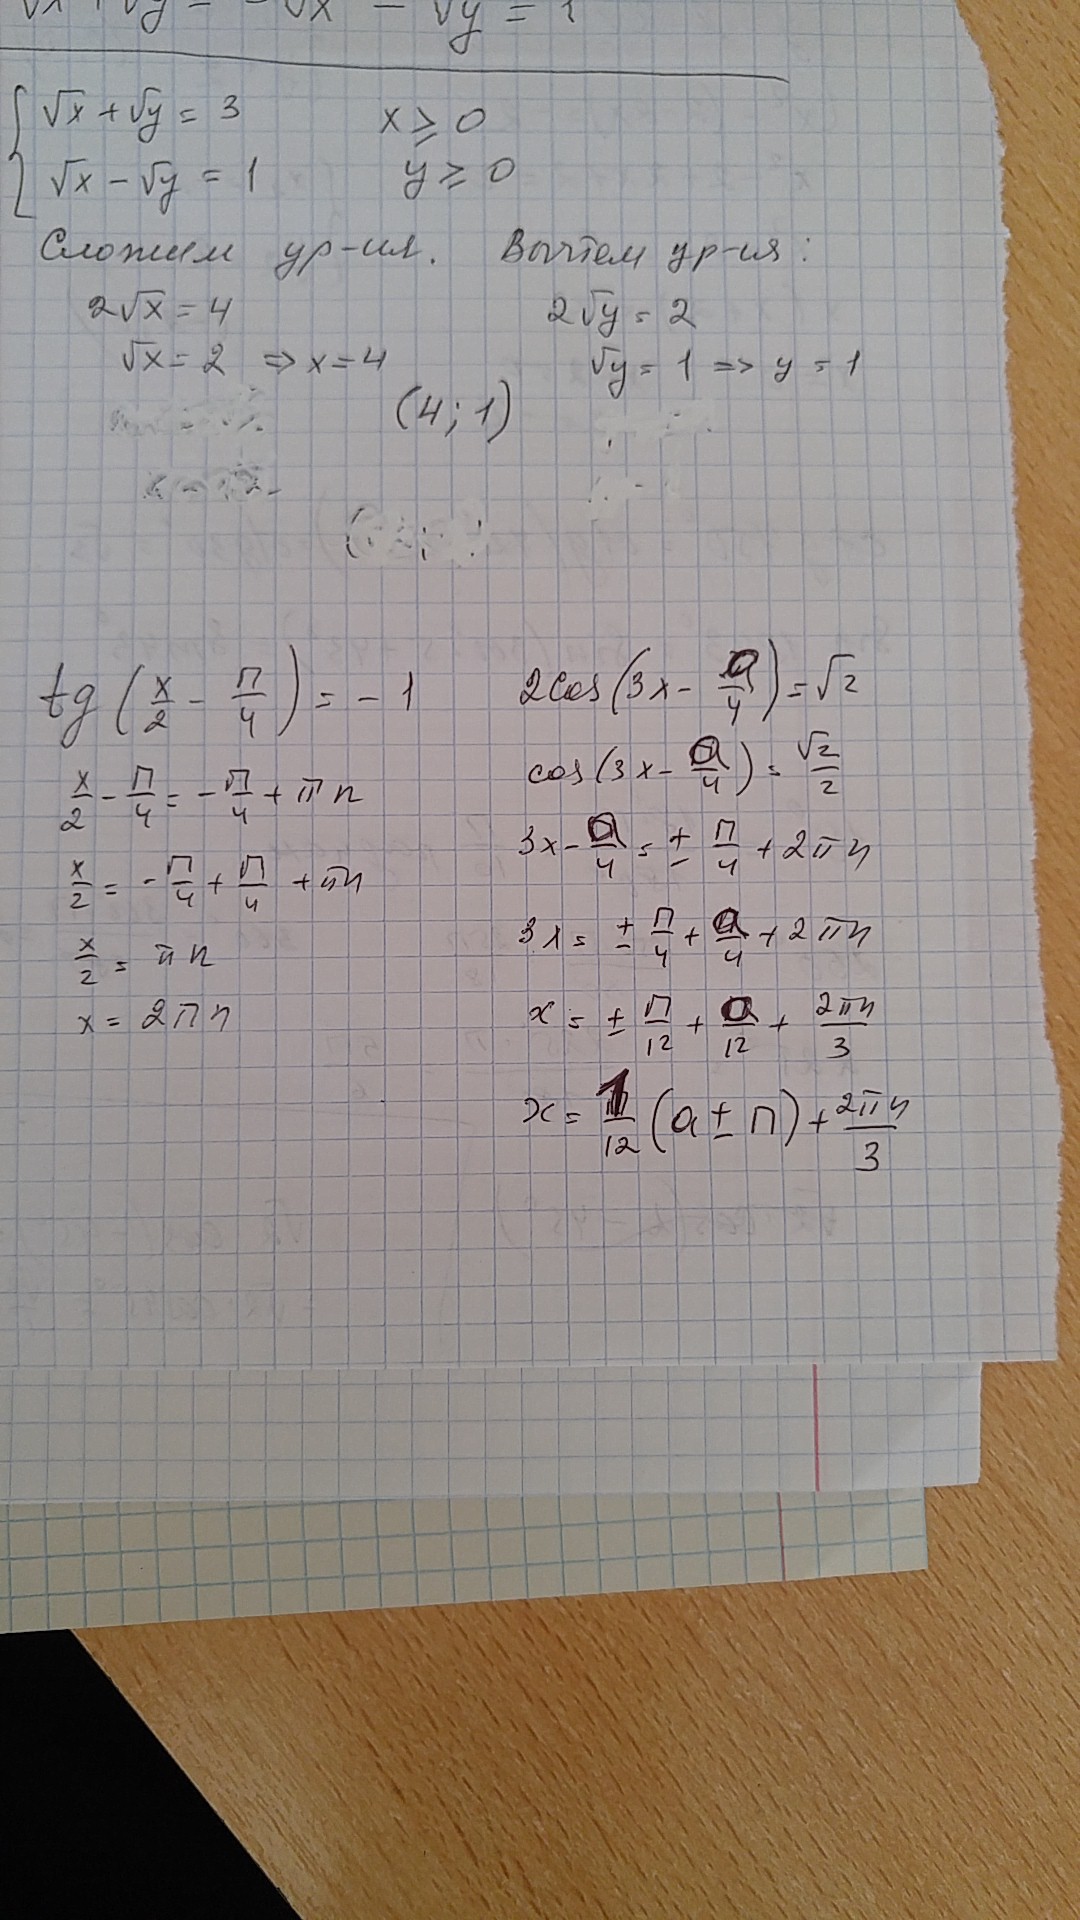 √x + √y = - √x - √y = 1
√x + √y = 3 x ≥ 0
√x - √y = 1 y ≥ 0
Сложим ур-ия. Вычтем ур-ия:
2√x = 4 2√y = 2
√x = 2 => x = 4 √y = 1 => y = 1
(4; 1)
tg(x/2 - π/4) = -1
x/2 - π/4 = -π/4 + πn
x/2 = -π/4 + π/4 + πn
x/2 = πn
x = 2πn
2cos(3x - a/4) = √2
cos(3x - a/4) = √2/2
3x - a/4 = ± π/4 + 2πn
3x = ± π/4 + a/4 + 2πn
x = ± π/12 + a/12 + 2πn/3
x = 1/12 (a ± π) + 2πn/3